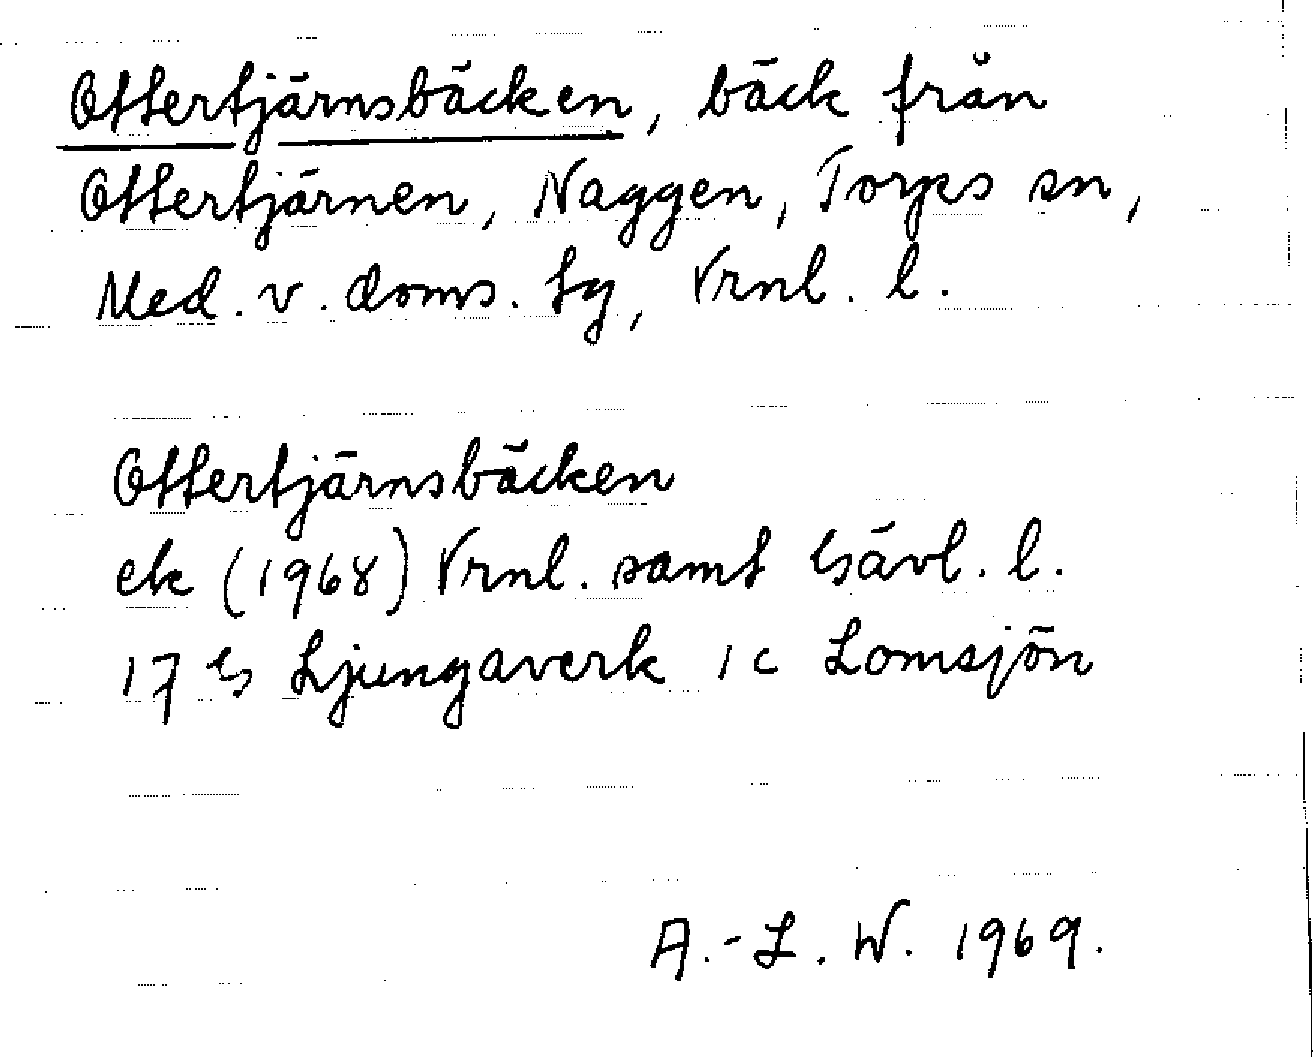 Ottertjärnsbäcken, bäck från
Ottertjärnen, Naggen, Torps sn,
Med. v. doms. tg, Vrnl. l.
Ottertjärnsbäcken
ek (1968) Vrnl. samt Gävl. l.
17 G Ljungaverk 1 c Lomsjön
A.-L. W. 1969.